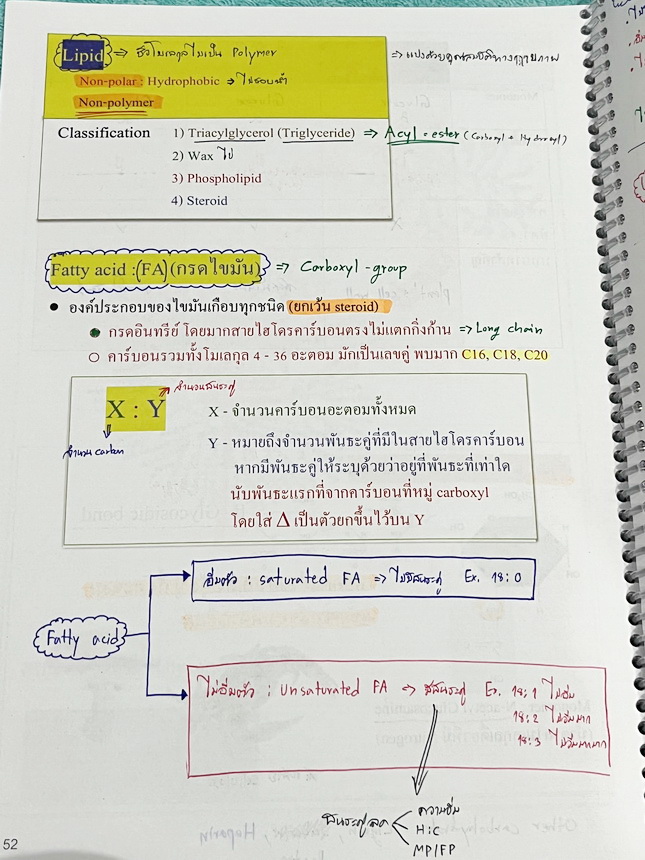 Lipid ⇒ ชีวโมเลกุลไม่เป็น Polymer ⇒ แบ่งด้วยคุณสมบัติทางกายภาพ
Non-polar : Hydrophobic → ไม่ชอบน้ำ
Non-polymer
Classification 1) Triacylglycerol (Triglyceride) ⇒ Acyl - ester (Carboxyl + Hydroxyl)
2) Wax ไข
3) Phospholipid
4) Steroid
Fatty acid : (FA) (กรดไขมัน) ⇒ Carboxyl - group
• องค์ประกอบของไขมันเกือบทุกชนิด (ยกเว้น steroid)
กรดอินทรีย์ โดยมากสายไฮโดรคาร์บอนตรงไม่แตกกิ่งก้าน ⇒ Long chain
○ คาร์บอนรวมทั้งโมเลกุล 4 - 36 อะตอม มักเป็นเลขคู่ พบมาก C16, C18, C20
จำนวนพันธะคู่
X : Y
จำนวน carbon
X - จำนวนคาร์บอนอะตอมทั้งหมด
Y - หมายถึงจำนวนพันธะคู่ที่มีในสายไฮโดรคาร์บอน
หากมีพันธะคู่ให้ระบุด้วยว่าอยู่ที่พันธะที่เท่าใด
นับพันธะแรกที่จากคาร์บอนที่หมู่ carboxyl
โดยใส่ Δ เป็นตัวยกขึ้นไว้บน Y
อิ่มตัว : saturated FA ⇒ ไม่มีพันธะคู่ Ex. 18 : 0
Fatty acid
ไม่อิ่มตัว : Unsaturated FA ⇒ มีพันธะคู่ Ex. 18 : 1 ไม่อิ่ม
18 : 2 ไม่อิ่มมาก
18 : 3 ไม่อิ่มมากมาก
ความอิ่ม
พันธะคู่ลด H:C
MP/FP
52